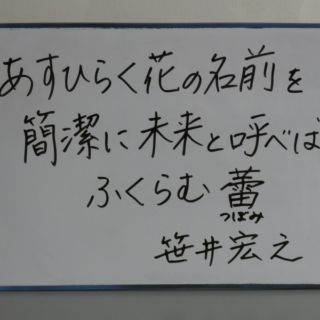 あすひらく花の名前を
簡潔に未来と呼べば
ふくらむ蕾
つぼみ
笹井宏之